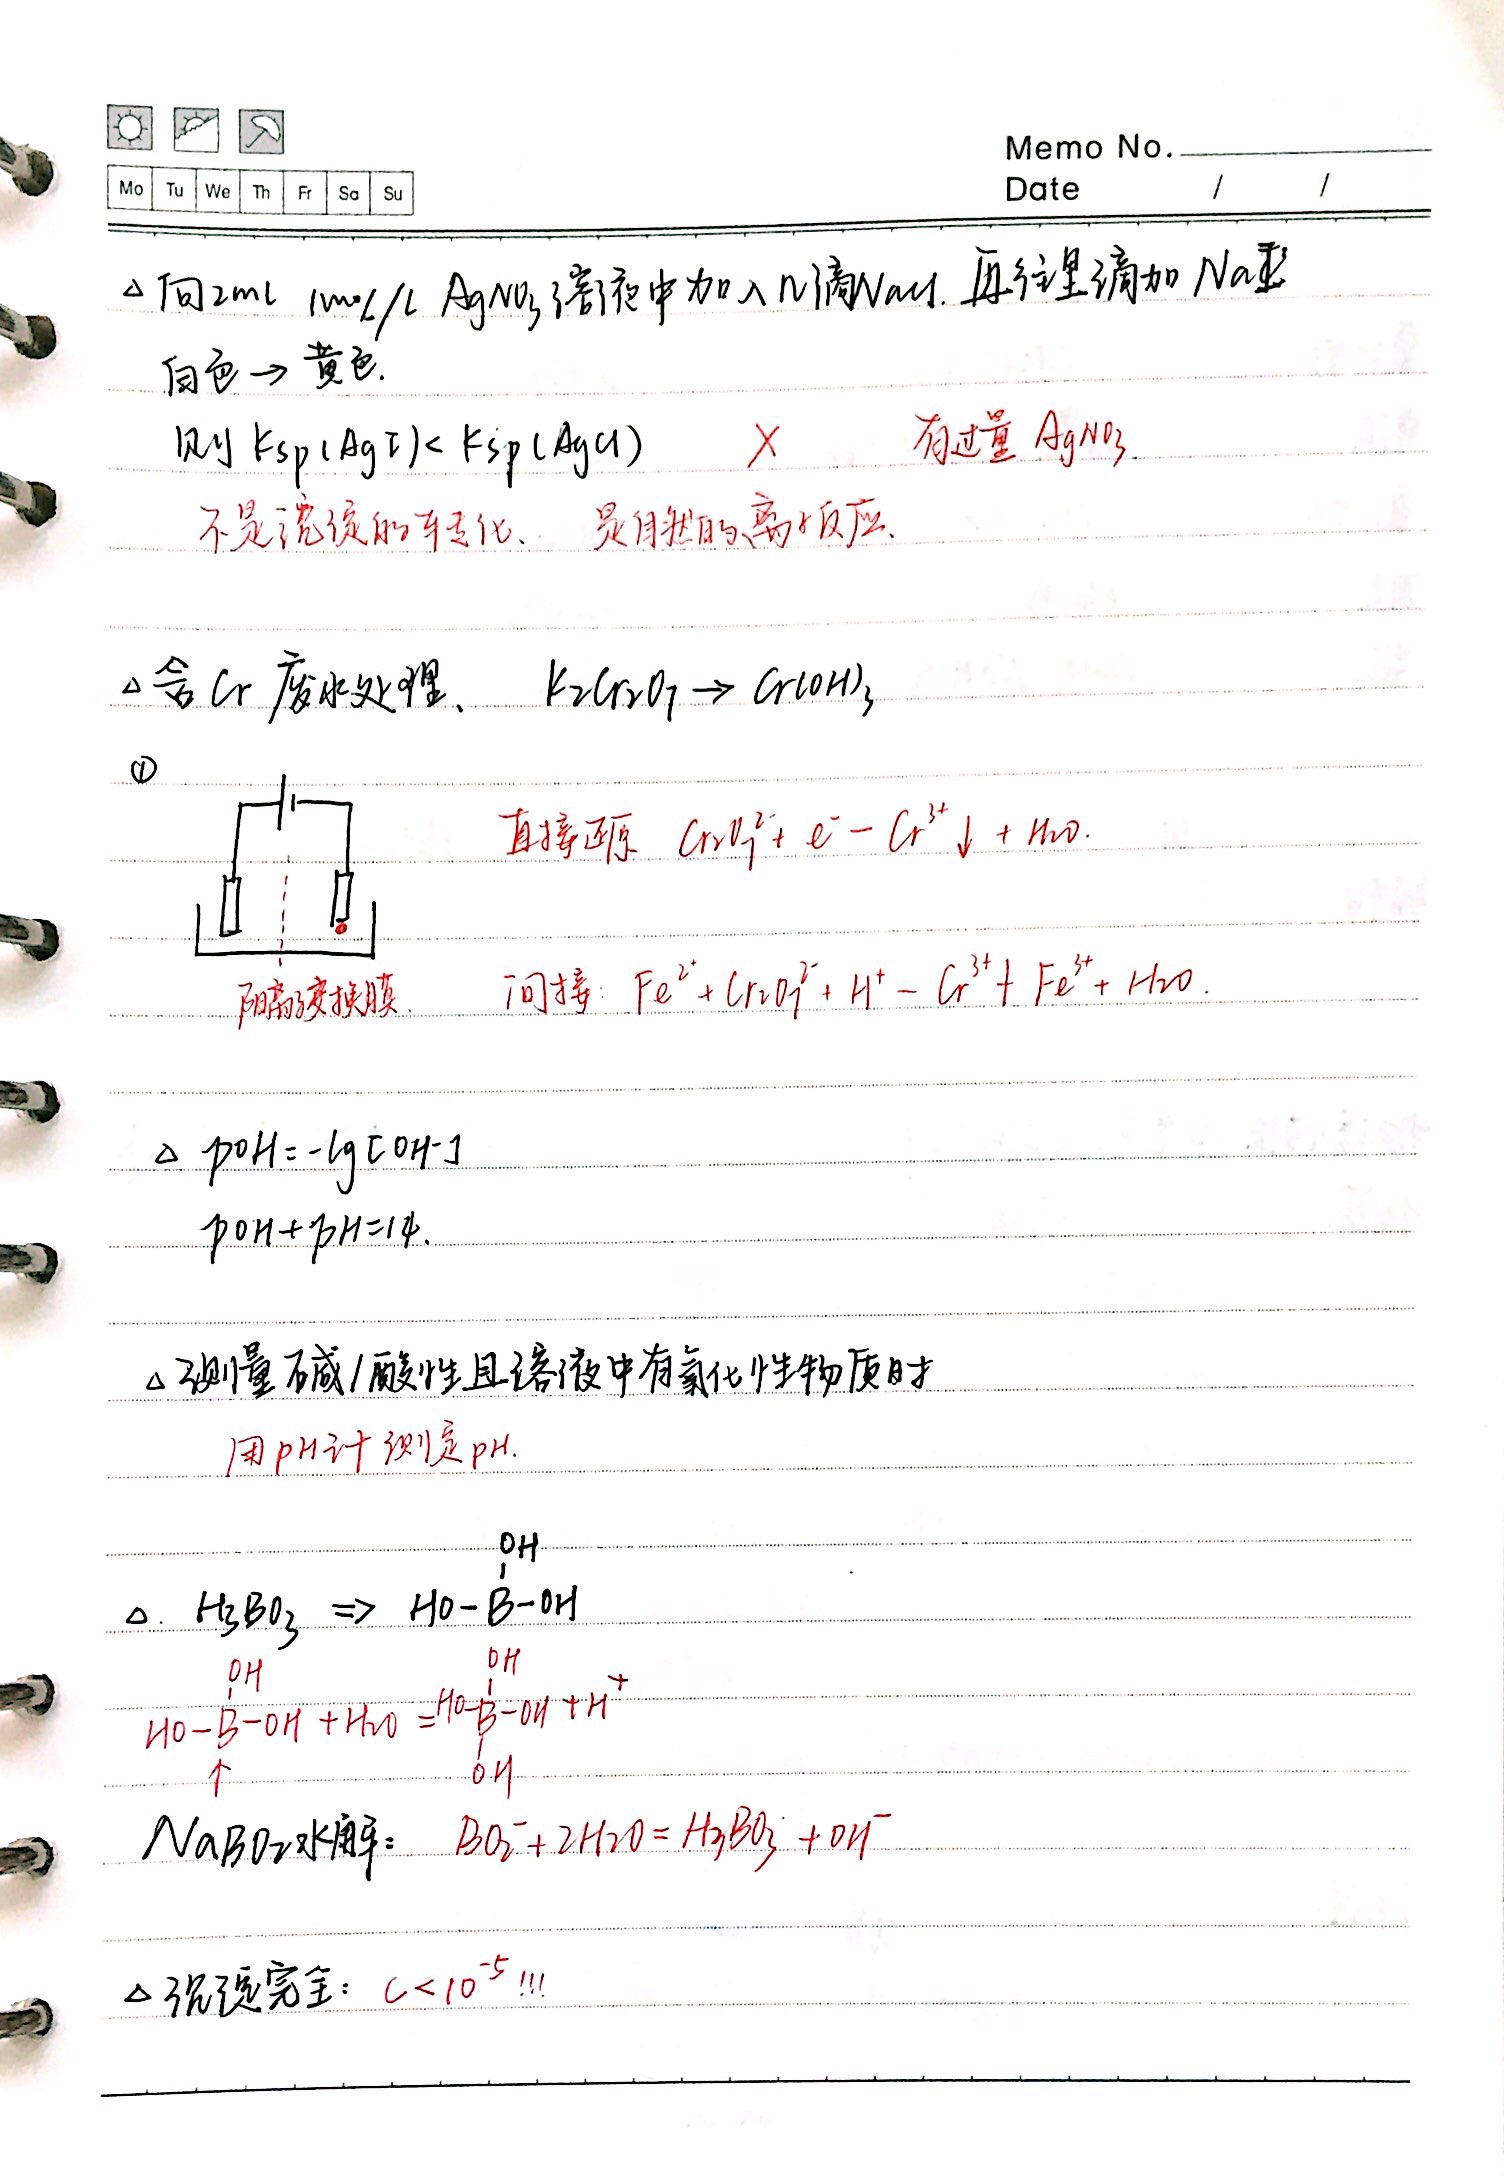 Memo No.
Mo Tu We Th Fr Sa Su
Date / /
△ 向2mL 1mol/L AgNO₃溶液中加入几滴NaCl. 再往里滴加 NaI
白色→黄色.
则 Ksp(AgI)< Ksp(AgCl) × 有过量 AgNO₃.
不是沉淀的转化、 是自然的离子反应.
△ 含Cr 废水处理、 K₂Cr₂O₇ → Cr(OH)₃
①
直接还原 Cr₂O₇²⁻ + e⁻ — Cr³⁺↓ + H₂O.
阳离子交换膜. 间接: Fe²⁺ + Cr₂O₇²⁻ + H⁺ — Cr³⁺ + Fe³⁺ + H₂O.
△ pOH = -lg[OH-]
pOH + pH = 14.
△ 测量碱/酸性且溶液中有氧化性物质时
用pH计测定pH.
OH
△. H₃BO₃ => HO-B-OH
OH OH
HO-B-OH + H₂O = HO-B-OH + H⁺
↑ OH
NaBO₂水解: BO₂⁻ + 2H₂O = H₃BO₃ + OH⁻
△ 沉淀完全: C<10⁻⁵!!!